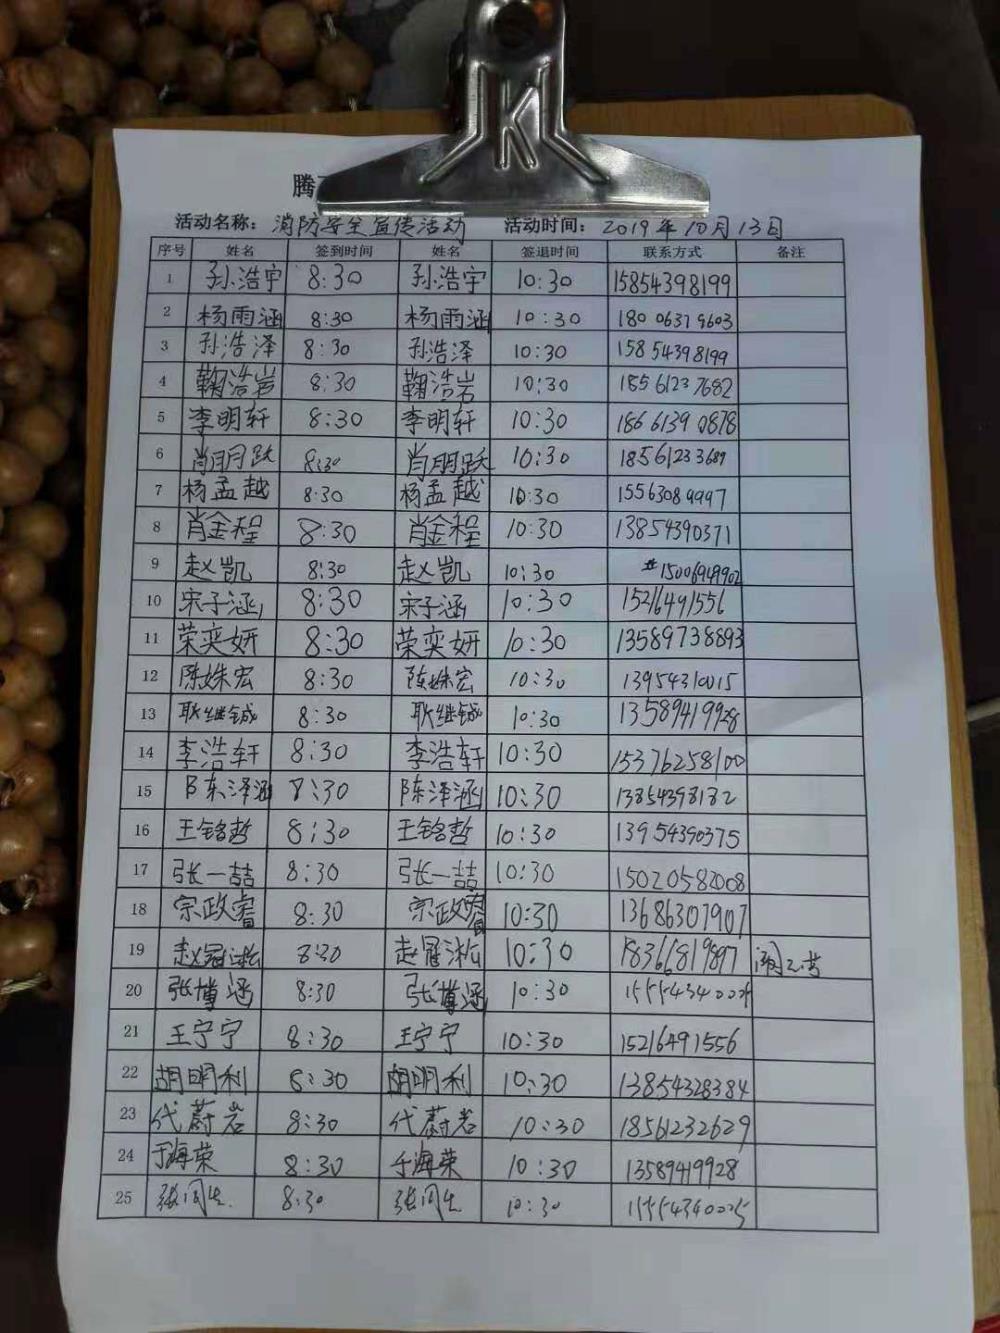 腾
活动名称：消防安全宣传活动 活动时间：2019年10月13日
序号 姓名 签到时间 姓名 签退时间 联系方式 备注
1 孙浩宇 8:30 孙浩宇 10:30 15854398199
2 杨雨涵 8:30 杨雨涵 10:30 18006379603
3 孙浩泽 8:30 孙浩泽 10:30 15854398199
4 鞠浩岩 8:30 鞠浩岩 10:30 18561237682
5 李明轩 8:30 李明轩 10:30 18661390878
6 肖朋跃 8:30 肖朋跃 10:30 18561233689
7 杨孟越 8:30 杨孟越 10:30 15563089997
8 肖金程 8:30 肖金程 10:30 13854390371
9 赵凯 8:30 赵凯 10:30 15006949902
10 宋子涵 8:30 宋子涵 10:30 15216491556
11 荣奕妍 8:30 荣奕妍 10:30 13589738893
12 陈姝宏 8:30 陈姝宏 10:30 13954310015
13 耿继铖 8:30 耿继铖 10:30 13589419928
14 李浩轩 8:30 李浩轩 10:30 15376258100
15 陈泽涵 8:30 陈泽涵 10:30 13854398182
16 王铭哲 8:30 王铭哲 10:30 13954390375
17 张一喆 8:30 张一喆 10:30 15020582008
18 宗政睿 8:30 宗政睿 10:30 13686307907
19 赵冠淞 8:30 赵冠淞 10:30 18366819897
20 张博涵 8:30 张博涵 10:30 15554340025
21 王宁宁 8:30 王宁宁 10:30 15216491556
22 胡明利 8:30 胡明利 10:30 13854328384
23 代蔚岩 8:30 代蔚岩 10:30 18561232629
24 于海荣 8:30 于海荣 10:30 13589419928
25 8:30 10:30 15554340025